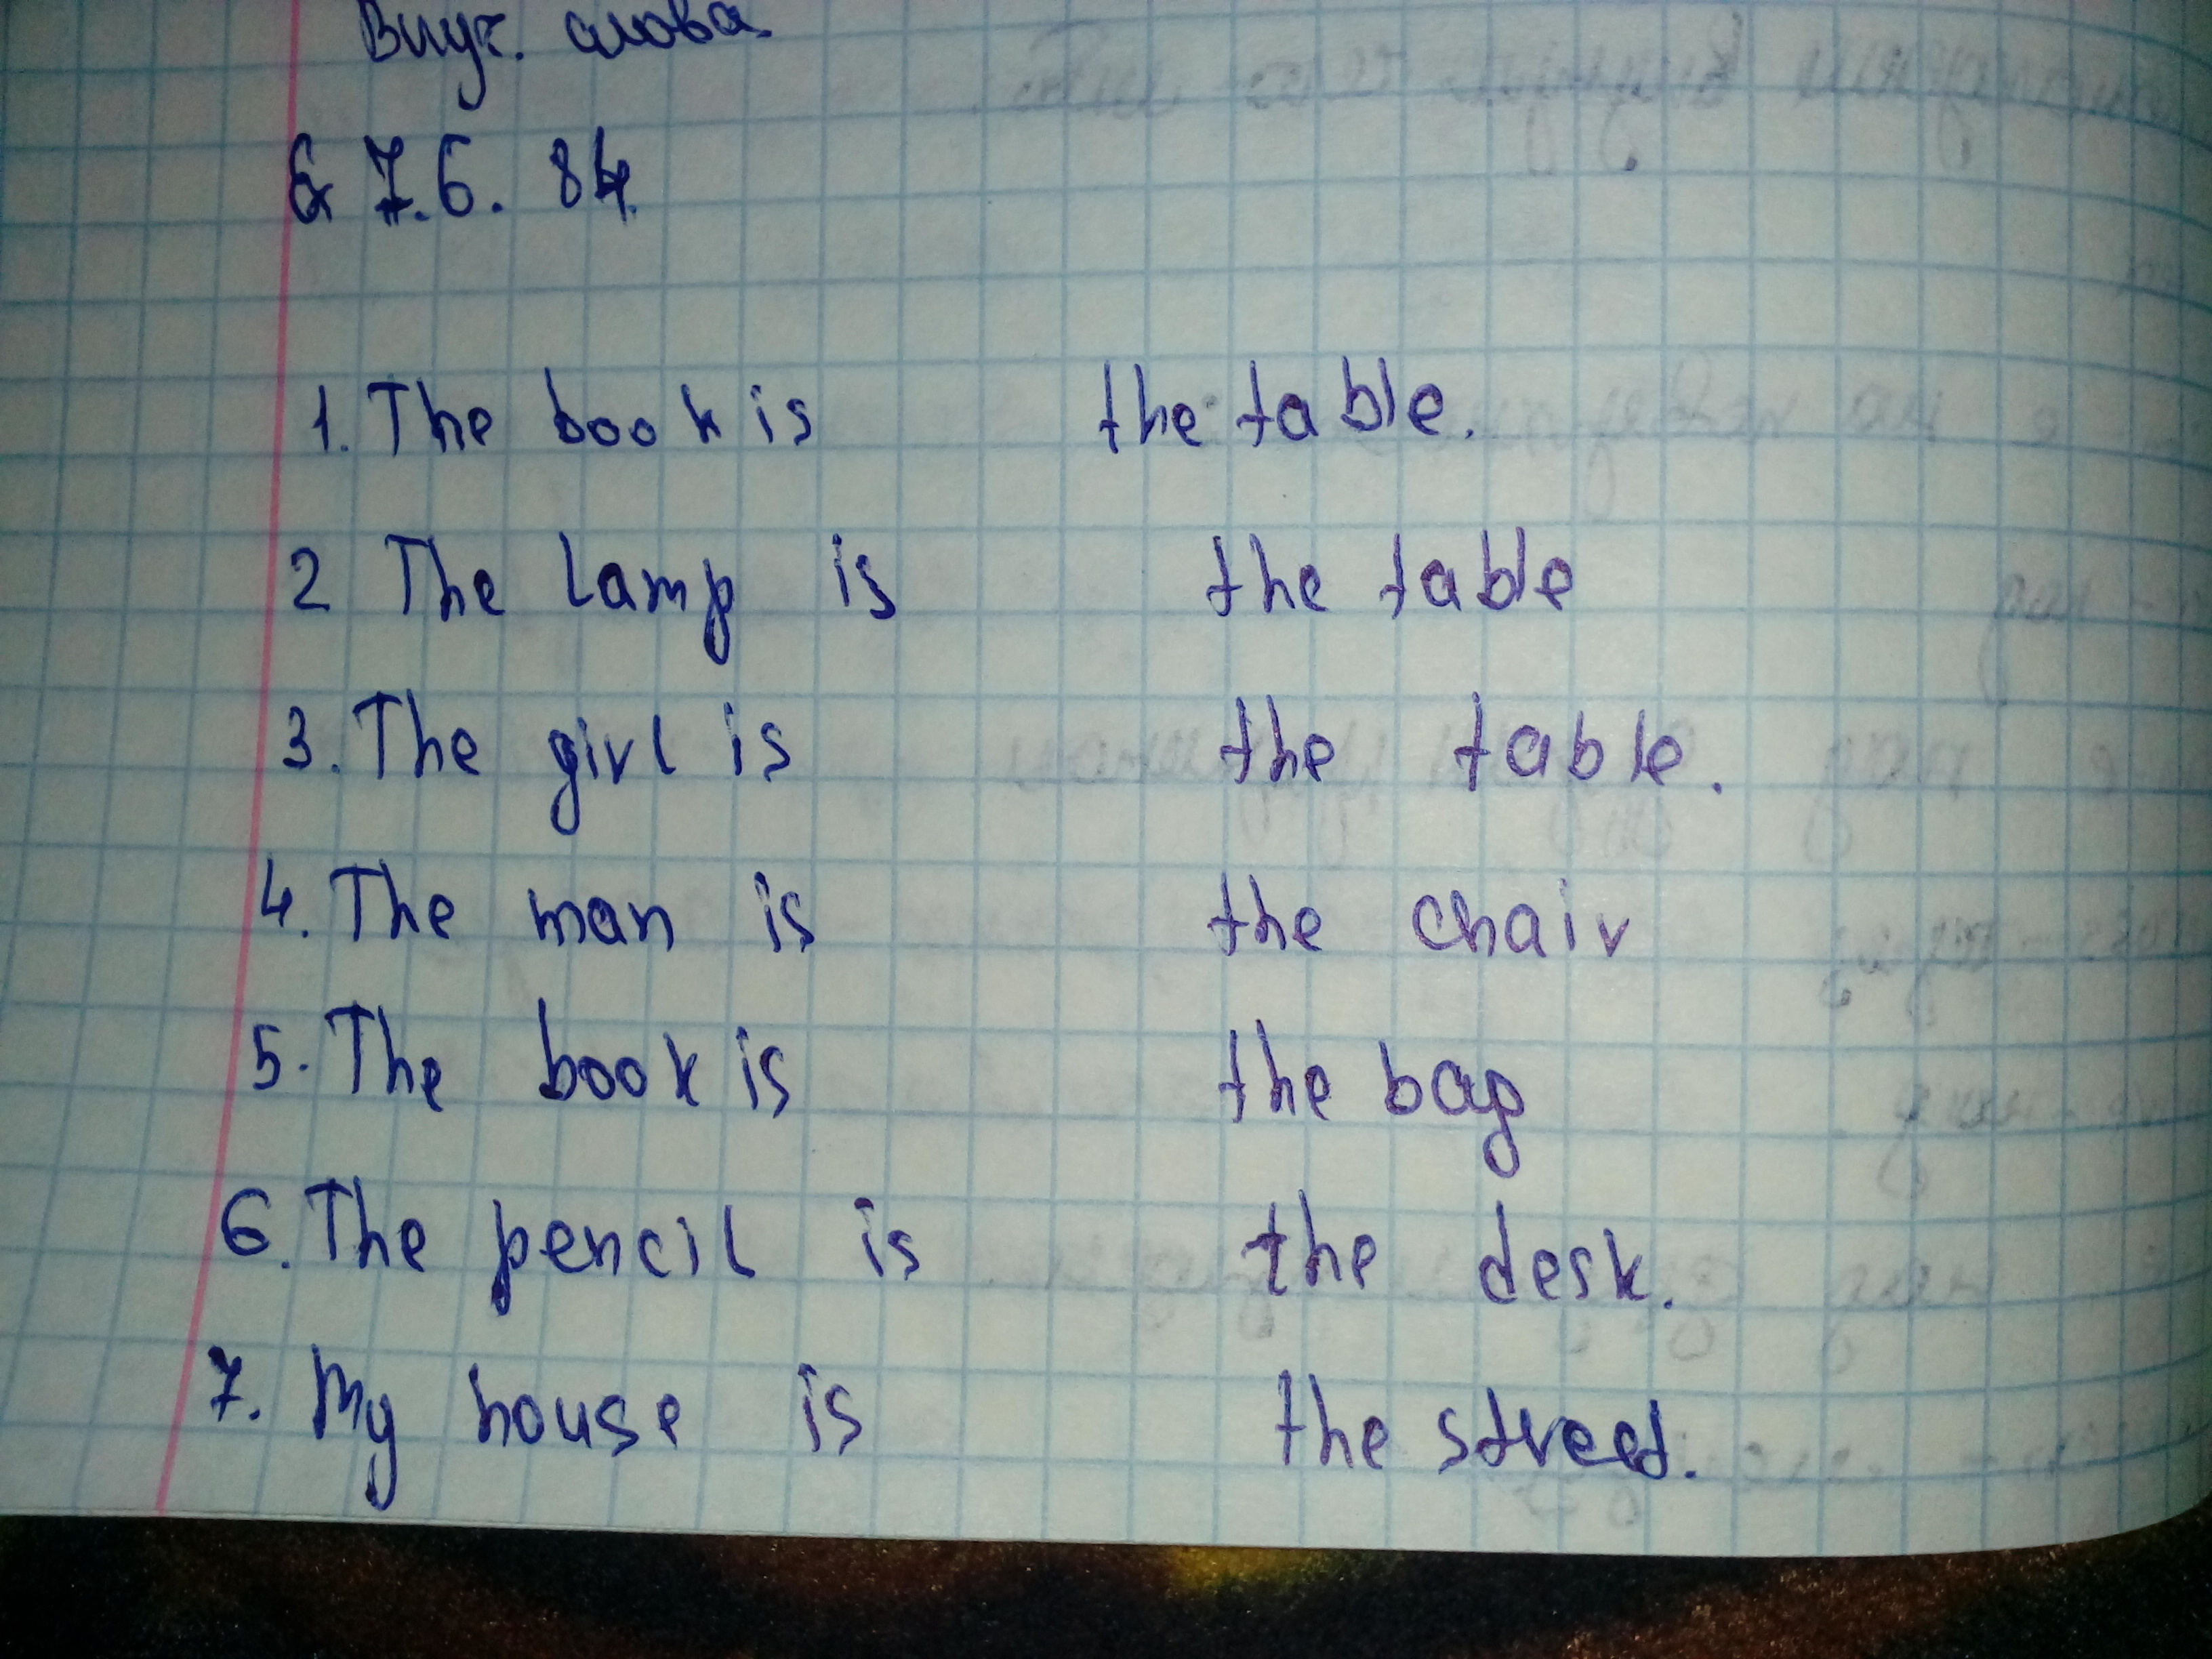 Виуч. слова.
& 7. 6. 84.
1. The book is the table.
2 The lamp is the table
3. The girl is the table.
4. The man is the chair
5. The book is the bag
6. The pencil is the desk.
7. My house is the street.